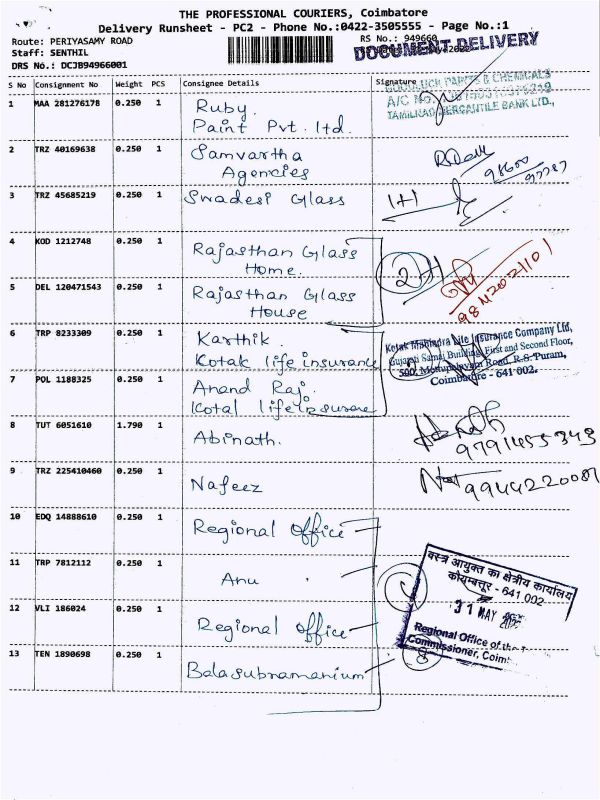 THE PROFESSIONAL COURIERS, Coimbatore
Delivery Runsheet - PC2 - Phone No.:0422-3505555 - Page No.:1
Route: PERIYASAMY ROAD RS No.: 949660
DOCUMENT DELIVERY
Staff: SENTHIL
DRS No.: DCJB94966001
S No Consignment No Weight PCS Consignee Details Signature
1 MAA 281276178 0.250 1 Ruby.
Paint Pvt. ltd.
PAINTS & CHEMICALS
A/C No.
TAMILNAD MERCANTILE BANK LTD.,
2 TRZ 40169638 0.250 1 Samvartha
Agencies
3 TRZ 45685219 0.250 1 Swadesi Glass
1+1
4 KOD 1212748 0.250 1 Rajasthan Glass
Home.
2
9842021101
5 DEL 120471543 0.250 1 Rajasthan Glass
House
6 TRP 8233309 0.250 1 Karthik.
Kotak life insurance
Kotak Mahindra Life Insurance Company Ltd,
Gujarati Samaj Building, First and Second Floor,
500, Mettupalayam Road, R.S. Puram,
Coimbatore - 641 002.
7 POL 1188325 0.250 1 Anand Raj.
Kotal life insurance
8 TUT 6051610 1.790 1 Abinath.
9791455343
9 TRZ 225410460 0.250 1 Nafeez
9944220087
10 EDQ 14888610 0.250 1 Regional Office
11 TRP 7812112 0.250 1 Anu
12 VLI 186024 0.250 1 Regional Office
13 TEN 1890698 0.250 1 Balasubramanium
वस्त्र आयुक्त का क्षेत्रीय कार्यालय
कोयम्बत्तूर - 641 002
31 MAY
Regional Office of the
Commissioner, Coim